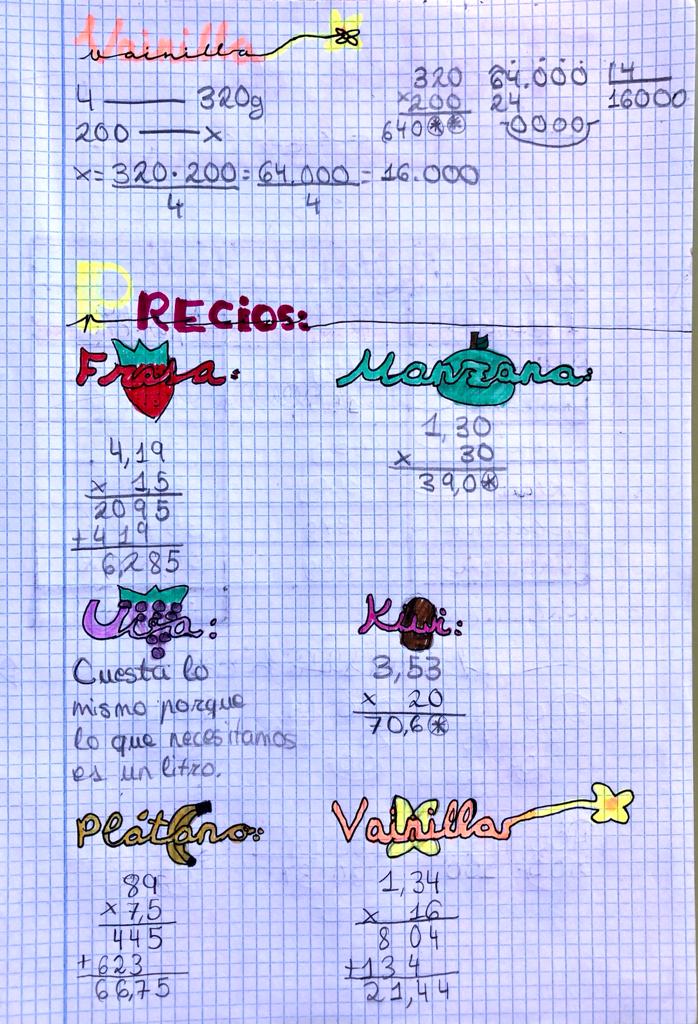 Vainilla
4 —— 320g
200 —— x
x = 320 · 200 = 64.000 = 16.000
4 4
320
x 200
640⊛⊛
64.000 |4
24 16000
0000
PRECIOS:
Fresa:
4,19
x 1,5
2095
+419
6,285
Manzana:
1,30
x 30
39,0⊛
Uva:
Cuesta lo
mismo porque
lo que necesitamos
es un litro.
Kiwi:
3,53
x 20
70,6⊛
Plátano:
89
x 7,5
445
+623
66,75
Vainilla
1,34
x 16
8 04
+13 4
21,44